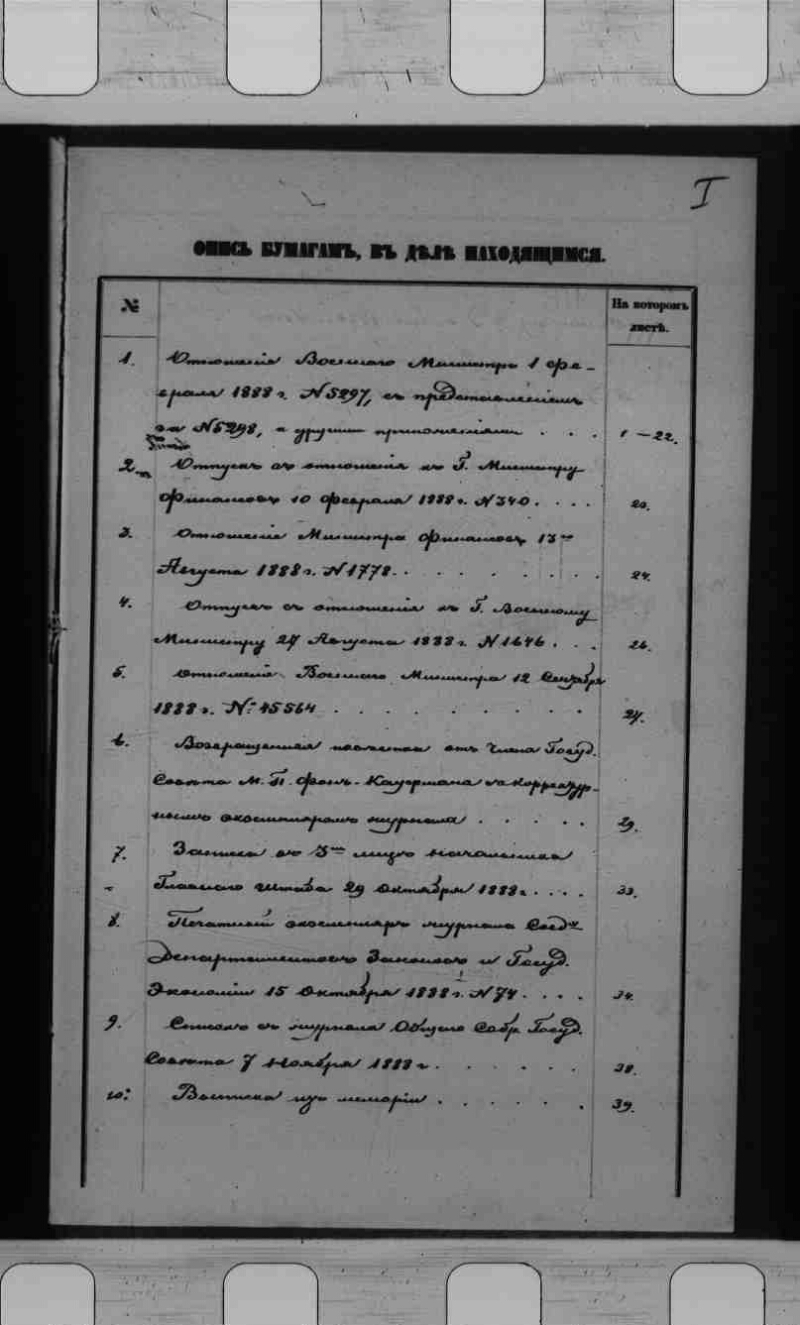 I
ОПИСЬ БУМАГАМЪ, ВЪ ДѢЛѢ НАХОДЯЩИМСЯ.
№
На которомъ
листѣ.
1. Отношеніе Военнаго Министра 1 фе-
враля 1888 г. №5297, съ представленіемъ
за №5298, и другими приложеніями . . . 1 — 22.
2. Отпускъ съ отношенія къ Г. Министру
Финансовъ 10 февраля 1888 г. №340. . . .
3. Отношеніе Министра Финансовъ 13го
Августа 1888 г. №1778. . . . . . . . . 24.
4. Отпускъ съ отношенія къ Г. Военному
Министру 27 Августа 1888 г. №1646 . . . 26.
5. Отношеніе Военнаго Министра 12 Сентября
1888 г. №15564 . . . . . . . . . 27.
6. Возвращенная отъ Члена Госуд.
Совѣта М. П. фонъ-Кауфмана съ корректур-
нымъ экземпляромъ журнала . . . . . 29.
7. Записка въ 3мъ лицѣ Начальника
Главнаго Штаба 29 Октября 1888 г. . . . 33.
8. Печатный экземпляръ журнала Соед.
Департаментовъ Законовъ и Госуд.
Экономіи 15 Октября 1888 г. №74 . . . . 34.
9. Списокъ съ журнала Общаго Собр. Госуд.
Совѣта 7 Ноября 1888 г. . . . . . . 38.
10. Выписка изъ меморіи . . . . . . . 39.